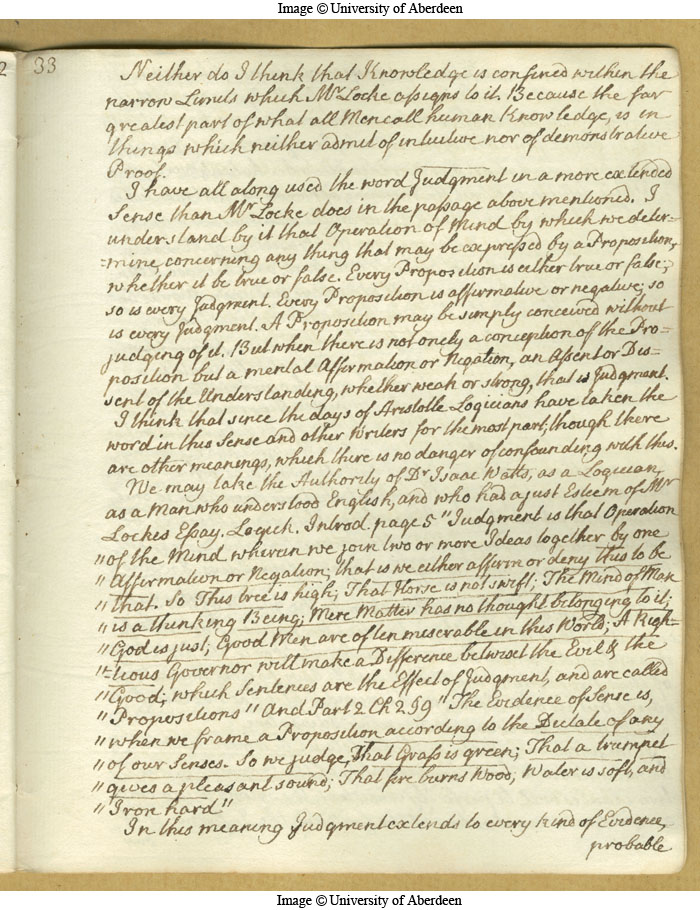 Image © University of Aberdeen
2
33
Neither do I think that Knowledge is confined within the
narrow Limits which Mr Locke assigns to it. Because the far
greatest part of what all Men call human Knowledge, is in
things which neither admit of intuitive nor of demonstrative
Proof.
I have all along used the word Judgment in a more extended
Sense than Mr Locke does in the passage above mentioned. I
understand by it that Operation of Mind by which we deter-
-mine, concerning any thing that may be expressed by a Proposition,
whether it be true or false. Every Proposition is either true or false;
so is every Judgment. Every Proposition is affirmative or negative; so
is every Judgment. A Proposition may be simply conceived without
judging of it. But when there is not onely a conception of the Pro=
position but a mental Affirmation or Negation, an Assent or Dis=
sent of the Understanding, whether weak or strong, that is Judgment.
I think that since the days of Aristotle Logicians have taken the
word in this Sense and other Writers for the most part, though there
are other meanings, which there is no danger of confounding with this.
We may take the Authority of Dr Isaac Watts, as a Logician,
as a Man who understood English, and who had a just Esteem of Mr
Lockes Essay. Logick. Introd. page 5 "Judgment is that Operation
"of the Mind wherein we join two or more Ideas together by one
"Affirmation or Negation; that is we either affirm or deny this to be
"that. So This tree is high; That Horse is not swift; The Mind of Man
"is a thinking Being; Mere Matter has no thought belonging to it;
"God is just; Good Men are often miserable in this World; A Righ-
"-tious Governor will make a Difference betwixt the Evil & the
"Good; which Sentences are the Effect of Judgment, and are called
"Propositions" And Part 2 Ch 2 § 9 "The Evidence of Sense is,
"when we frame a Proposition according to the Dictate of any
"of our Senses. So we judge, That Grass is green; That a trumpet
"gives a pleasant sound; That fire burns Wood; Water is soft, and
"Iron hard"
In this meaning Judgment extends to every kind of Evidence,
probable
Image © University of Aberdeen